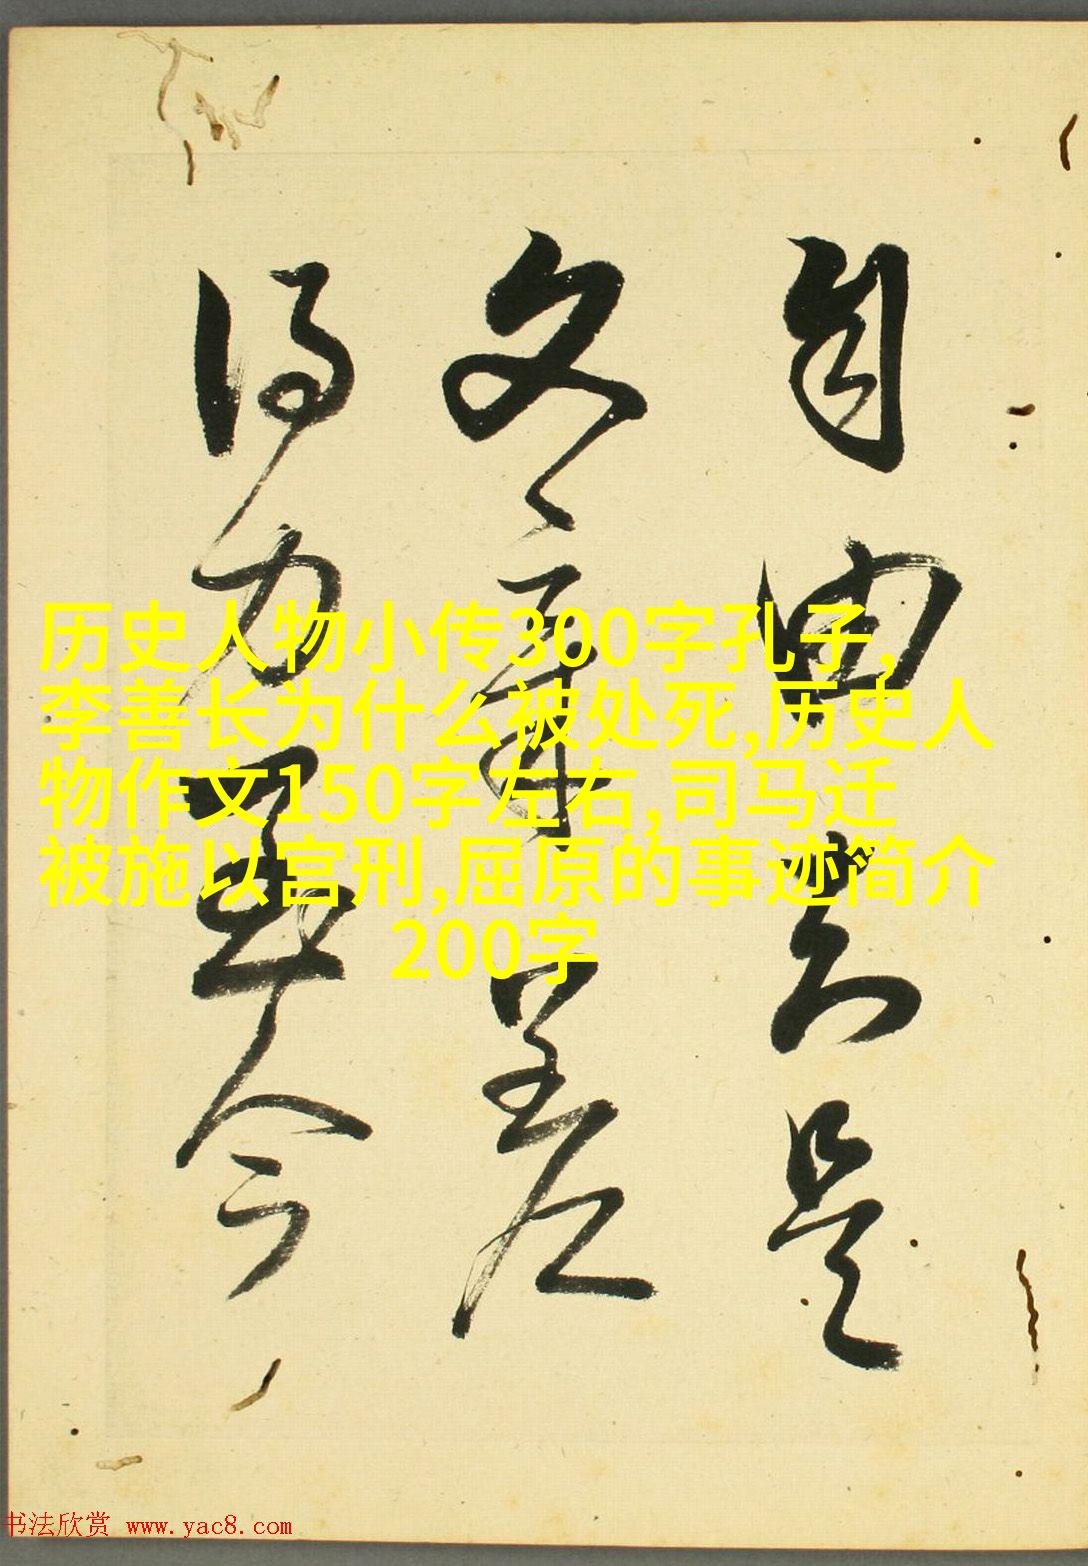 自由是
文章
得力今
历史人物小传300字孔子,
李善长为什么被处死,历史人
物作文150字左右,司马迁
被施以宫刑,屈原的事迹简介
200字
书法欣赏 www.yac8.com